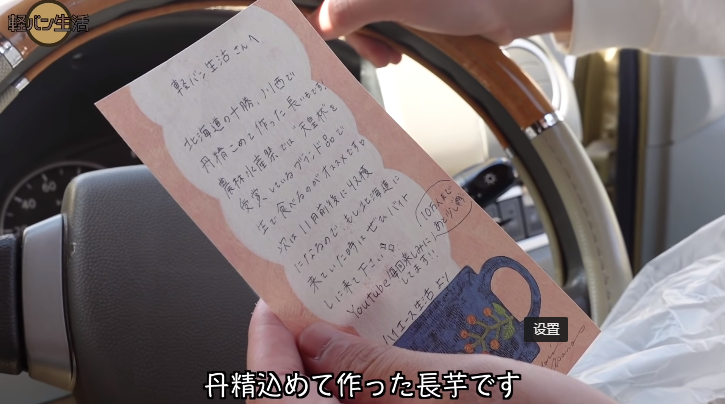 軽バン生活
軽バン生活さんへ
北海道の十勝、川西で
丹精こめて作った長いもです!
農林水産祭では"天皇杯"を
受賞しているブランド品で
生で食べるのがオススメですね
次は11月前後に収穫
になるので、もし北海道に
来ていた時はぜひバイト
しに来て下さい
Youtube毎回楽しみに
してます!!
10万人まで
あと少し
ハイエース生活より
设置
丹精込めて作った長芋です